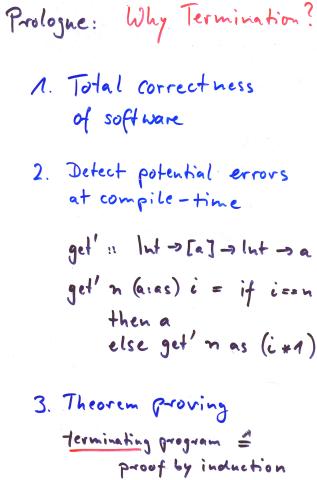 Prologue: Why Termination?
1. Total correctness
of software
2. Detect potential errors
at compile-time
get' :: Int → [a] → Int → a
get' n (a:as) i = if i==n
then a
else get' n as (i*1)
3. Theorem proving
terminating program ≙
proof by induction